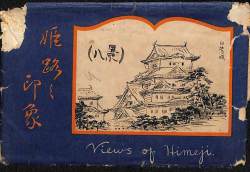 姫路之
印象
(八景)
Views of Himeji.